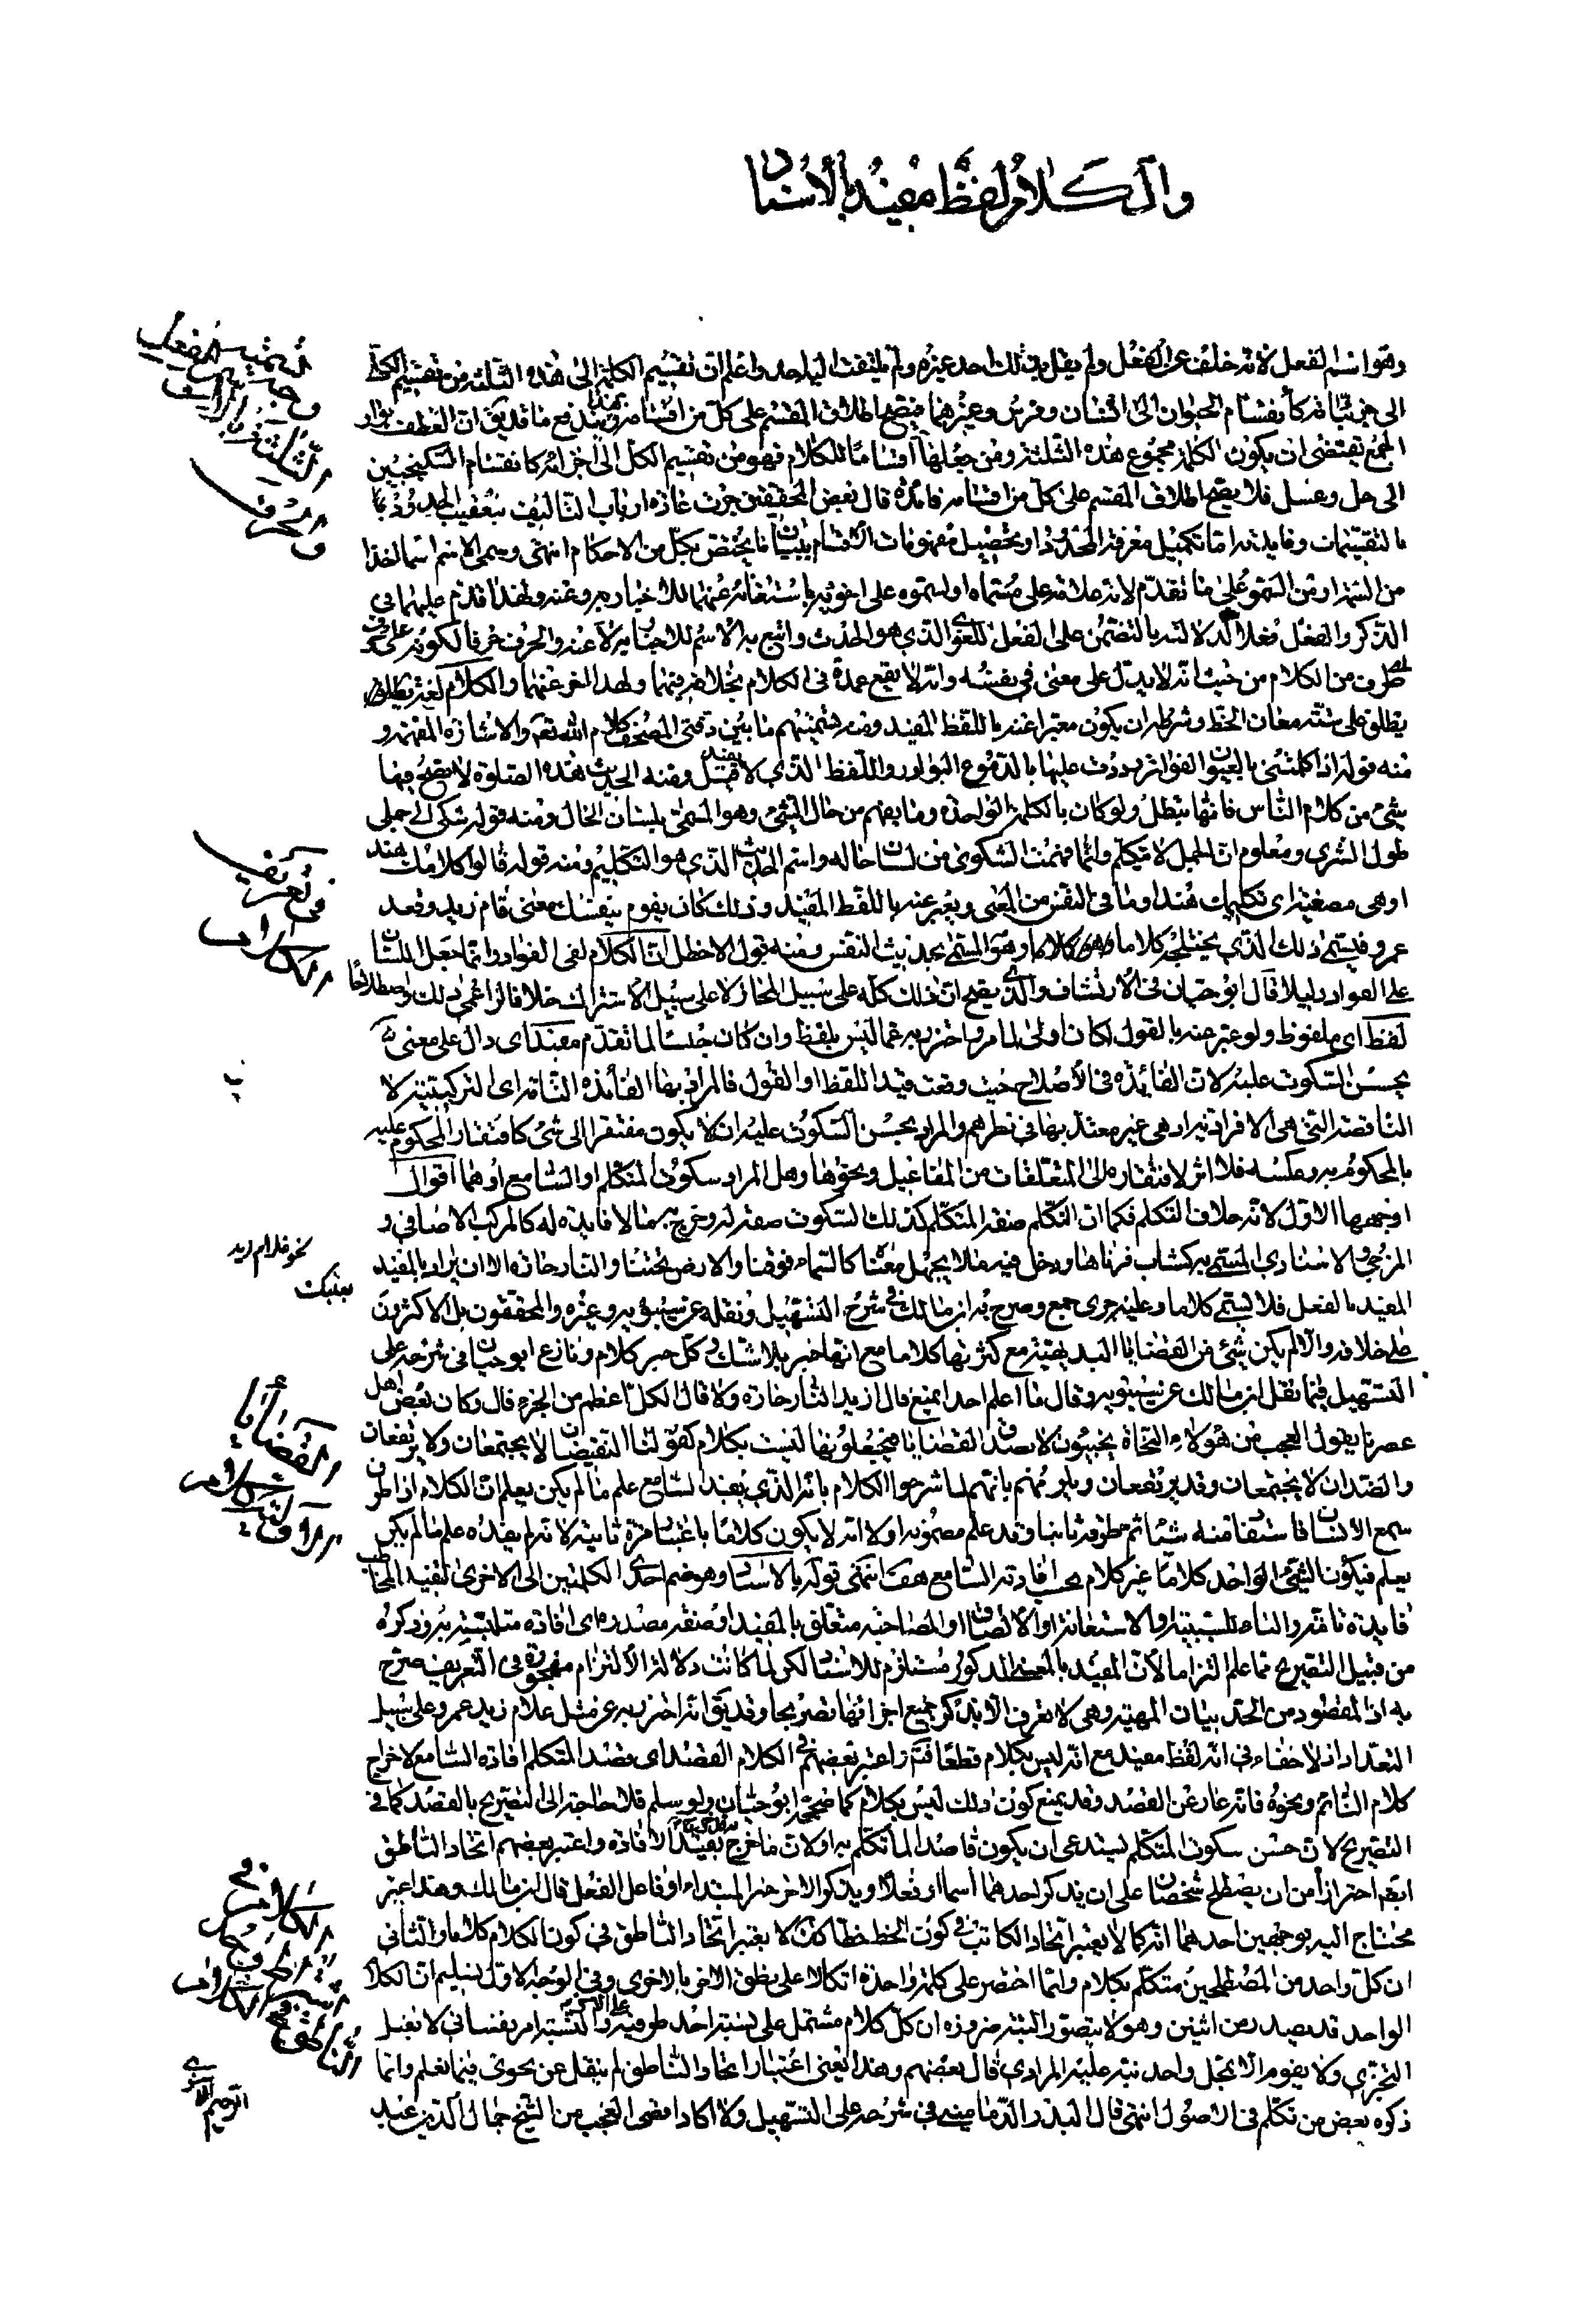 والكلام لفظ مفيد بالاسناد
وهو اسم الفعل لانه خلف عن الفعل ولم يقل بذلك احد غيره ولم يلتفت اليه احد واعلم ان تقسيم الكلمة الى هذه الثلاثة من تقسيم الكلي
الى جزئياته كانقسام الحيوان الى انسان وفرس وغيرهما فيصح اطلاق المقسم على كل من اقسامه وبهذا يندفع ما قد يق ان العطف بواو
الجمع يقتضي ان يكون الكلمة مجموع هذه الثلاثة ومن جعلها اقساما للكلام فهو من تقسيم الكل الى اجزائه كانقسام السكنجبين
الى خل وعسل فلا يصح اطلاق المقسم على كل من اقسامه فائدة قال بعض المحققين جرت عادة ارباب التاليف بتعقيب الحدود
بالتقسيمات وفايدته اما تكميل معرفة المحدود او تحصيل مفهومات الاقسام بتبيان ما يختص بكل من الاحكام انتهى وسمي الاسم اسما اخذا
من السمة او من السمو على ما تقدم لانه علامة على مسماه او لسموه على اخويه باستغنائه عنهما للاخبار به وعنه ولهذا قدم عليهما في
الذكر والفعل فعلا لدلالته بالتضمن على الفعل اللغوي الذي هو الحدث واتبع به الاسم للاخبار به لا عنه والحرف حرفا لكونه على حرف
اي طرف من الكلام من حيث انه لا يدل على معنى في نفسه وانه لا يقع عمدة في الكلام بخلاف قسيميه ولهذا اخر عنهما والكلام لغة يطلق
يطلق على ستة معان الخط وشرطه ان يكون معبرا عنه باللفظ المفيد ومنه تسميتهم ما بين دفتي المصحف كلام الله تعم والاشارة المفهمة و
منه قوله اذا كلمتني بالعيون الفواتر رددت عليها بالدموع البوادر واللفظ الذي لا يفيد ومنه الحديث هذه الصلوة لا يصح فيها
شيء من كلام الناس فانها تبطل ولو كان بالكلمة الواحدة وما يفهم من حال الشيء وهو المسمى بلسان الحال ومنه قوله شكى الي جملي
طول السرى ومعلوم ان الجمل لا يتكلم وانما فهمت الشكوى من لسان حاله واسم الحدث الذي هو التكليم ومنه قوله قالوا كلامك هند
او هي مصغية اي تكليمك هندا وما في النفس من المعنى ويعبر عنه باللفظ المفيد وذلك كان يقوم بنفسك معنى قام زيد وقعد
عمرو فيسمى ذلك الذي يختلج كلاما وهو المسمى بحديث النفس ومنه قول الاخطل ان الكلام لفي الفواد وانما جعل اللسان
على الفواد دليلا قال ابو حيان في الارتشاف والذي يصح ان ذلك كله على سبيل المجاز لا على سبيل الاشتراك خلافا لزاعمي ذلك واصطلاحا
لفظ اي ملفوظ ولو عبر عنه بالقول لكان اولى لما مر واحترز به عما ليس بلفظ وان كان جنسا لما تقدم مفيد اي دال على معنى
يحسن السكوت عليه لان الفائدة في الاصلاح حيث وقعت قيدا للفظ او القول فالمراد بها الفائدة التامة اي التركيبية لا
الناقصة التي هي الافرادية اذ هي غير معتد بها في نظرهم والمراد بحسن السكوت عليه ان لا يكون مفتقرا الى شيء كافتقار المحكوم عليه
بالمحكوم به وعكسه فلا اثر لافتقاره الى المتعلقات من المفاعيل ونحوها وهل المراد سكوت المتكلم او السامع او هما اقوال
اوجهها الاول لانه خلاف التكلم فكما ان التكلم صفة المتكلم كذلك السكوت صفة له وخرج به ما لا فايدة له كالمركب الاضافي و
المزجي والاسنادي المسمى به كشاب قرناها ودخل فيه ما لا يجهل معناه كالسماء فوقنا والارض تحتنا والنار حارة الا ان يراد بالمفيد
المفيد بالفعل فلا يسمى كلاما وعليه جرى جمع وصرح به ابن مالك في شرح التسهيل ونقله عن سيبويه وغيره والمحققون بل الاكثرون
على خلافه والا لم يكن شيء من القضايا البديهية مع كثرتها كلاما مع انها خبر بلا شك وكل خبر كلام ونازع ابو حيان في شرحه على
التسهيل فيما نقل ابن مالك عن سيبويه وقال ما اعلم احدا يمنع قال زيد النار حارة ولا قال الكل اعظم من الجزء قال وكان بعض اهل
عصرنا يقول العجب من هولاء النحاة يجيبون لاصدق القضايا فيجعلونها ليست بكلام كقولنا النقيضان لا يجتمعان ولا يرتفعان
والضدان لا يجتمعان وقد يرتفعان ويلزمهم بانهم لما شرحوا الكلام بانه الذي يفيد السامع علم ما لم يكن يعلم ان الكلام اذا طرق
سمع الانسان فاستفاد منه شيئا ثم طرقه ثانيا وقد علم مضمونه اولا انه لا يكون كلاما باعتبار مرة ثانية لانه لم يفده علم ما لم يكن
يعلم فيكون الشيء الواحد كلاما غير كلام بحسب افادته السامع هف انتهى قوله بالاسناد وهو ضم احدى الكلمتين الى الاخرى لتفيد المخاطب
فايدة تامة والباء للسببية او الاستعانة او الالصاق او المصاحبة متعلق بالمفيد او صفة مصدره اي افادة متلبسة به وذكره
من قبيل التصريح بما علم التزاما لان المفيد بالمعنى المذكور مستلزم للاسناد لكن لما كانت دلالة الالتزام مهجورة في التعريف صرح
به اذ المقصود من الحد بيان المهية وهي لا تعرف الا بذكر جميع اجزائها تصريحا وقد يق انه احترز به عن مثل غلام زيد عمرو على سبيل
التعداد اذ لا خفاء في انه لفظ مفيد مع انه ليس بكلام قطعا قف واعتبر بعضهم في الكلام القصد اي قصد المتكلم افادة السامع لاخراج
كلام النائم ونحوه فانه عار عن القصد وقد يمنع كون ذلك ليس بكلام كما صححه ابو حيان ولو سلم فلا حاجة الى التصريح بالقصد كما في
التصريح لان حسن سكوت المتكلم يستدعي ان يكون قاصدا لما تكلم به او لان ما خرج بقيد الافادة واعتبر بعضهم اتحاد الناطق
ايضم احترازا من ان يصطلح شخصان على ان يذكر احدهما اسما او فعلا ويذكر الاخر خبر المبتداء او فاعل الفعل قال ابن مالك وهذا غير
محتاج اليه بوجهين احدهما انه كما لا يعتبر اتحاد الكاتب في كون الخط خطا كك لا يعتبر اتحاد الناطق في كون الكلام كلاما والثاني
ان كل واحد من المصطلحين متكلم بكلام وانما اختصر على كلمة واحدة اتكالا على نطق الاخر بالاخرى وفي الوجه الاول تسليم ان الكلام
الواحد قد يصدر من اثنين وهو لا يتصور البتة ضرورة ان كل كلام مشتمل على نسبة احد طرفيه والنسبة امر نفساني لا يقبل
التجزي ولا يقوم الا بمحل واحد نبه عليه المرادي قال بعضهم وهذا يعني اعتبار اتحاد الناطق لم ينقل عن نحوي فيما نعلم وانما
ذكره بعض من تكلم في الاصول انتهى قال البدر الدماميني في شرحه على التسهيل ولا اكاد اقضي العجب من الشيخ جمال الدين عبد
في تعريف
الكلام
القضايا